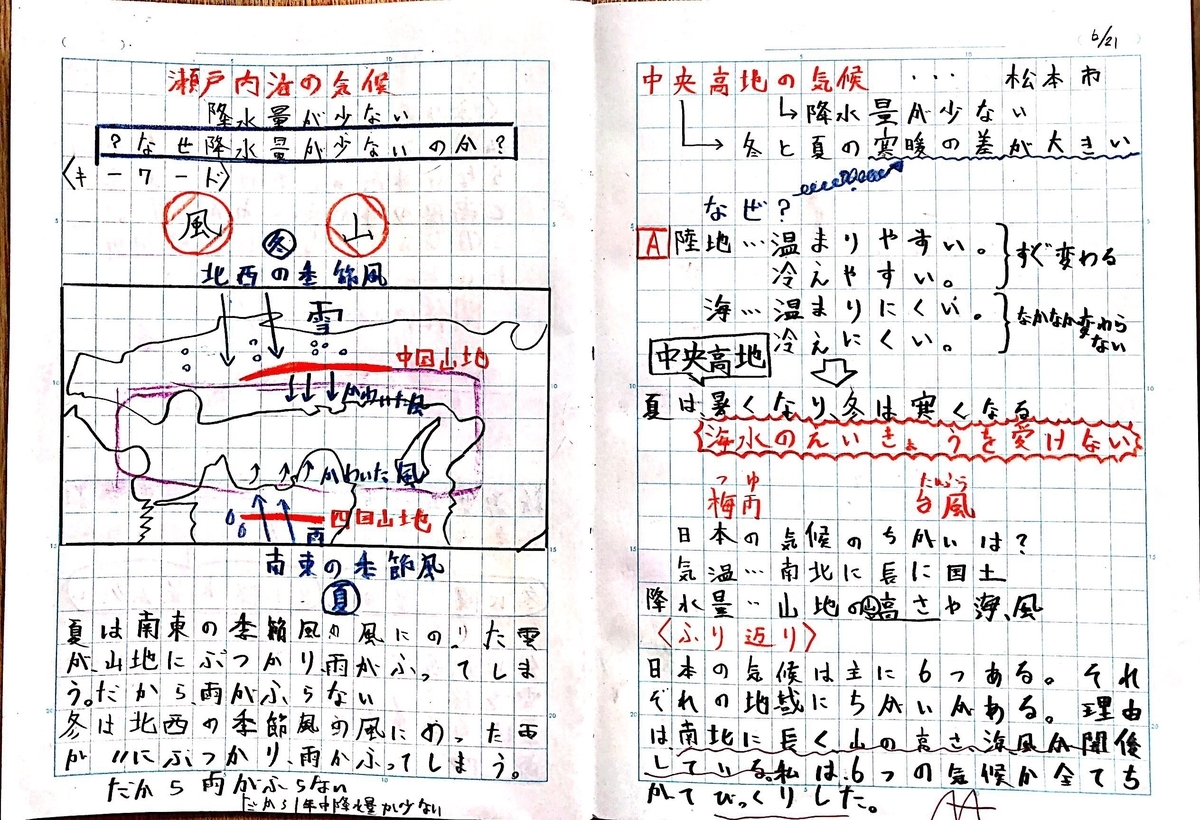 瀬戸内海の気候
降水量が少ない
？なぜ降水量が少ないのか？
〈キーワード〉
風 山
冬
北西の季節風
雪
中国山地
かわいた風
かわいた風
四国山地
雨
南東の季節風
夏
夏は南東の季節風の風にのった雲
が、山地にぶつかり、雨がふってしま
う。だから、雨がふらない
冬は北西の季節風の風にのった雨
が〃にぶつかり、雨がふってしまう。
だから雨がふらない
だから1年中降水量が少ない
6/21
中央高地の気候 ・・・ 松本市
↳降水量が少ない
→冬と夏の寒暖の差が大きい
なぜ？
A 陸地…温まりやすい。
冷えやすい。
すぐ変わる
海…温まりにくい。
冷えにくい。
なかなか変わら
ない
中央高地
夏は、暑くなり、冬は寒くなる
海水のえいきょうを受けない
つゆ たいふう
梅雨 台風
日本の気候のちがいは？
気温…南北に長に国土
降水量…山地の山高さや海、風
〈ふり返り〉
日本の気候は主に6つある。それ
ぞれの地域にちがいがある。理由
は南北に長く山の高さ、海風が関係
している。私は、6つの気候が全てち
がてびっくりした。